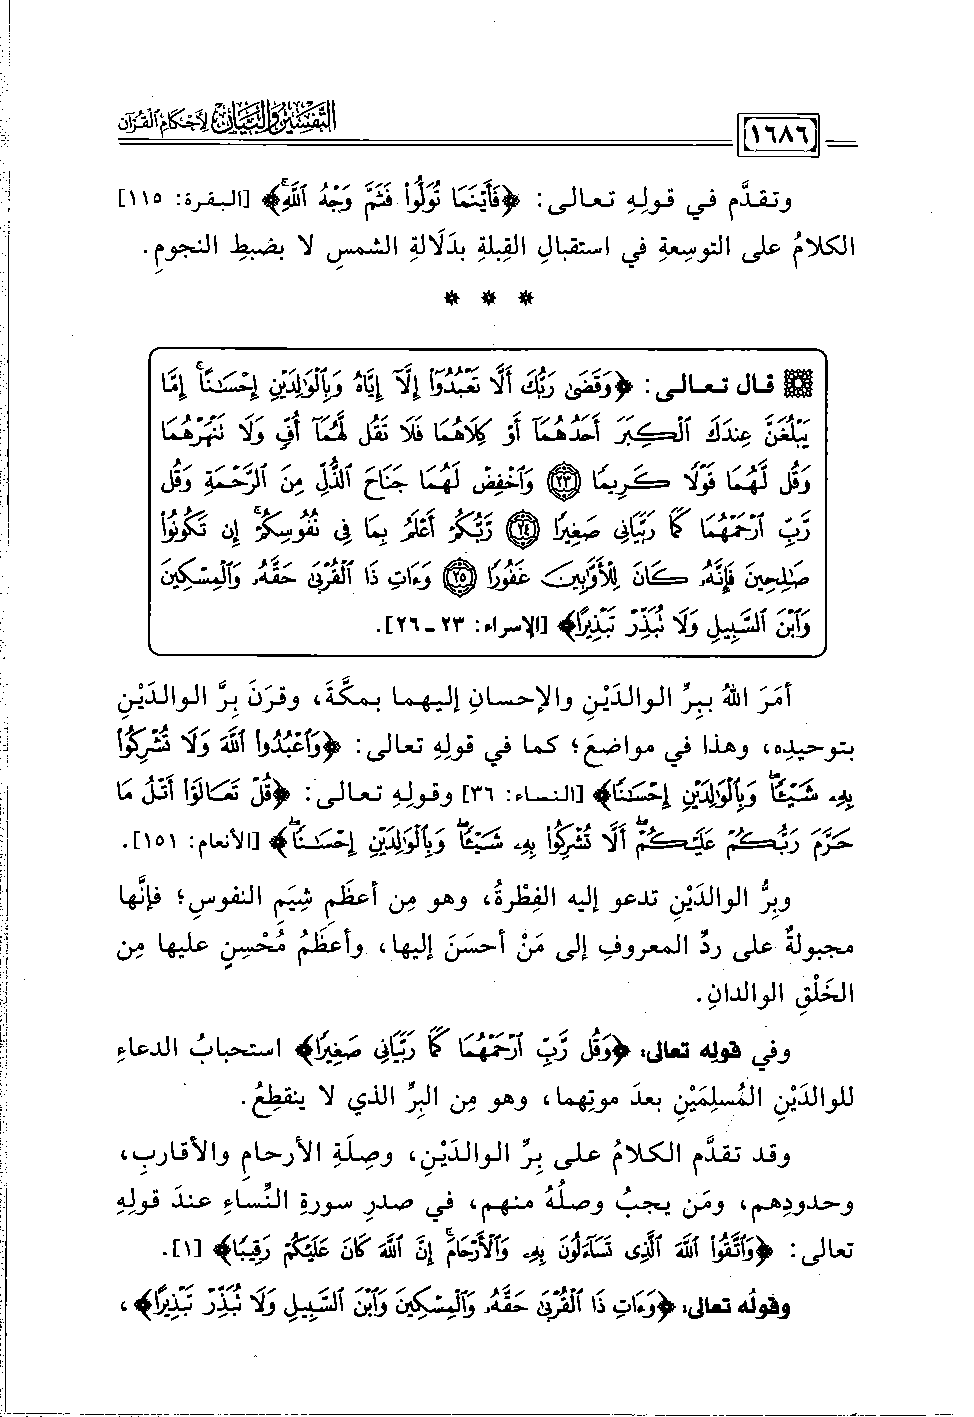 التفسير والبيان لأحكام القرآن
١٦٨٦
وتقدَّم في قولِهِ تعالى: ﴿فَأَيْنَمَا تُوَلُّوا۟ فَثَمَّ وَجْهُ ٱللَّهِۚ﴾ [البقرة: ١١٥]
الكلامُ على التوسِعةِ في استقبالِ القِبلةِ بدَلَالةِ الشمسِ لا بضبطِ النجومِ.
* * *
۞ قال تعالى: ﴿وَقَضَىٰ رَبُّكَ أَلَّا تَعْبُدُوٓا۟ إِلَّآ إِيَّاهُ وَبِٱلْوَٰلِدَيْنِ إِحْسَٰنًاۚ إِمَّا
يَبْلُغَنَّ عِندَكَ ٱلْكِبَرَ أَحَدُهُمَآ أَوْ كِلَاهُمَا فَلَا تَقُل لَّهُمَآ أُفٍّ وَلَا تَنْهَرْهُمَا
وَقُل لَّهُمَا قَوْلًا كَرِيمًا ٢٣ وَٱخْفِضْ لَهُمَا جَنَاحَ ٱلذُّلِّ مِنَ ٱلرَّحْمَةِ وَقُل
رَّبِّ ٱرْحَمْهُمَا كَمَا رَبَّيَانِى صَغِيرًا ٢٤ رَّبُّكُمْ أَعْلَمُ بِمَا فِى نُفُوسِكُمْۚ إِن تَكُونُوا۟
صَٰلِحِينَ فَإِنَّهُۥ كَانَ لِلْأَوَّٰبِينَ غَفُورًا ٢٥ وَءَاتِ ذَا ٱلْقُرْبَىٰ حَقَّهُۥ وَٱلْمِسْكِينَ
وَٱبْنَ ٱلسَّبِيلِ وَلَا تُبَذِّرْ تَبْذِيرًا﴾ [الإسراء: ٢٣ - ٢٦].
أمَرَ اللهُ ببِرِّ الوالدَيْنِ والإحسانِ إليهما بمكَّةَ، وقرَنَ بِرَّ الوالدَيْنِ
بتوحيدِه، وهذا في مواضعَ؛ كما في قولِهِ تعالى: ﴿وَٱعْبُدُوا۟ ٱللَّهَ وَلَا تُشْرِكُوا۟
بِهِۦ شَيْـًٔاۖ وَبِٱلْوَٰلِدَيْنِ إِحْسَٰنًا﴾ [النساء: ٣٦] وقولِهِ تعالى: ﴿قُلْ تَعَالَوْا۟ أَتْلُ مَا
حَرَّمَ رَبُّكُمْ عَلَيْكُمْۖ أَلَّا تُشْرِكُوا۟ بِهِۦ شَيْـًٔاۖ وَبِٱلْوَٰلِدَيْنِ إِحْسَٰنًاۖ﴾ [الأنعام: ١٥١].
وبِرُّ الوالدَيْنِ تدعو إليه الفِطْرةُ، وهو مِن أعظَمِ شِيَمِ النفوسِ؛ فإنَّها
مجبولةٌ على ردِّ المعروفِ إلى مَنْ أحسَنَ إليها، وأعظَمُ مُحْسِنٍ عليها مِن
الخَلْقِ الوالدانِ.
وفي قوله تعالى: ﴿وَقُل رَّبِّ ٱرْحَمْهُمَا كَمَا رَبَّيَانِى صَغِيرًا﴾ استحبابُ الدعاءِ
للوالدَيْنِ المُسلِمَيْنِ بعدَ موتِهما، وهو مِن البِرِّ الذي لا ينقطِعُ.
وقد تقدَّم الكلامُ على بِرِّ الوالدَيْنِ، وصِلَةِ الأرحامِ والأقاربِ،
وحدودِهم، ومَن يجبُ وصلُهُ منهم، في صدرِ سورةِ النِّساءِ عندَ قولِهِ
تعالى: ﴿وَٱتَّقُوا۟ ٱللَّهَ ٱلَّذِى تَسَآءَلُونَ بِهِۦ وَٱلْأَرْحَامَۚ إِنَّ ٱللَّهَ كَانَ عَلَيْكُمْ رَقِيبًا﴾ [١].
وقولُه تعالى: ﴿وَءَاتِ ذَا ٱلْقُرْبَىٰ حَقَّهُۥ وَٱلْمِسْكِينَ وَٱبْنَ ٱلسَّبِيلِ وَلَا تُبَذِّرْ تَبْذِيرًا﴾،